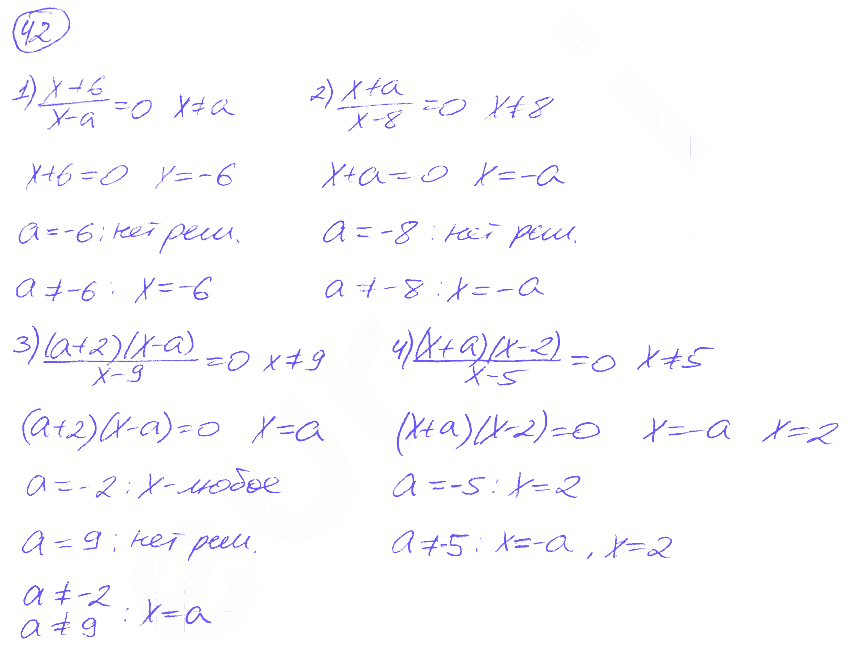 42
1) (x+6)/(x-a) = 0 x ≠ a
x+6=0 x=-6
a=-6: нет реш.
a ≠ -6: x=-6
2) (x+a)/(x-8) = 0 x ≠ 8
x+a=0 x=-a
a=-8: нет реш.
a ≠ -8: x=-a
3) (a+2)(x-a)/(x-9) = 0 x ≠ 9
(a+2)(x-a)=0 x=a
a=-2: x-любое
a=9: нет реш.
a ≠ -2
a ≠ 9 : x=a
4) (x+a)(x-2)/(x-5) = 0 x ≠ 5
(x+a)(x-2)=0 x=-a x=2
a=-5: x=2
a ≠ -5: x=-a, x=2